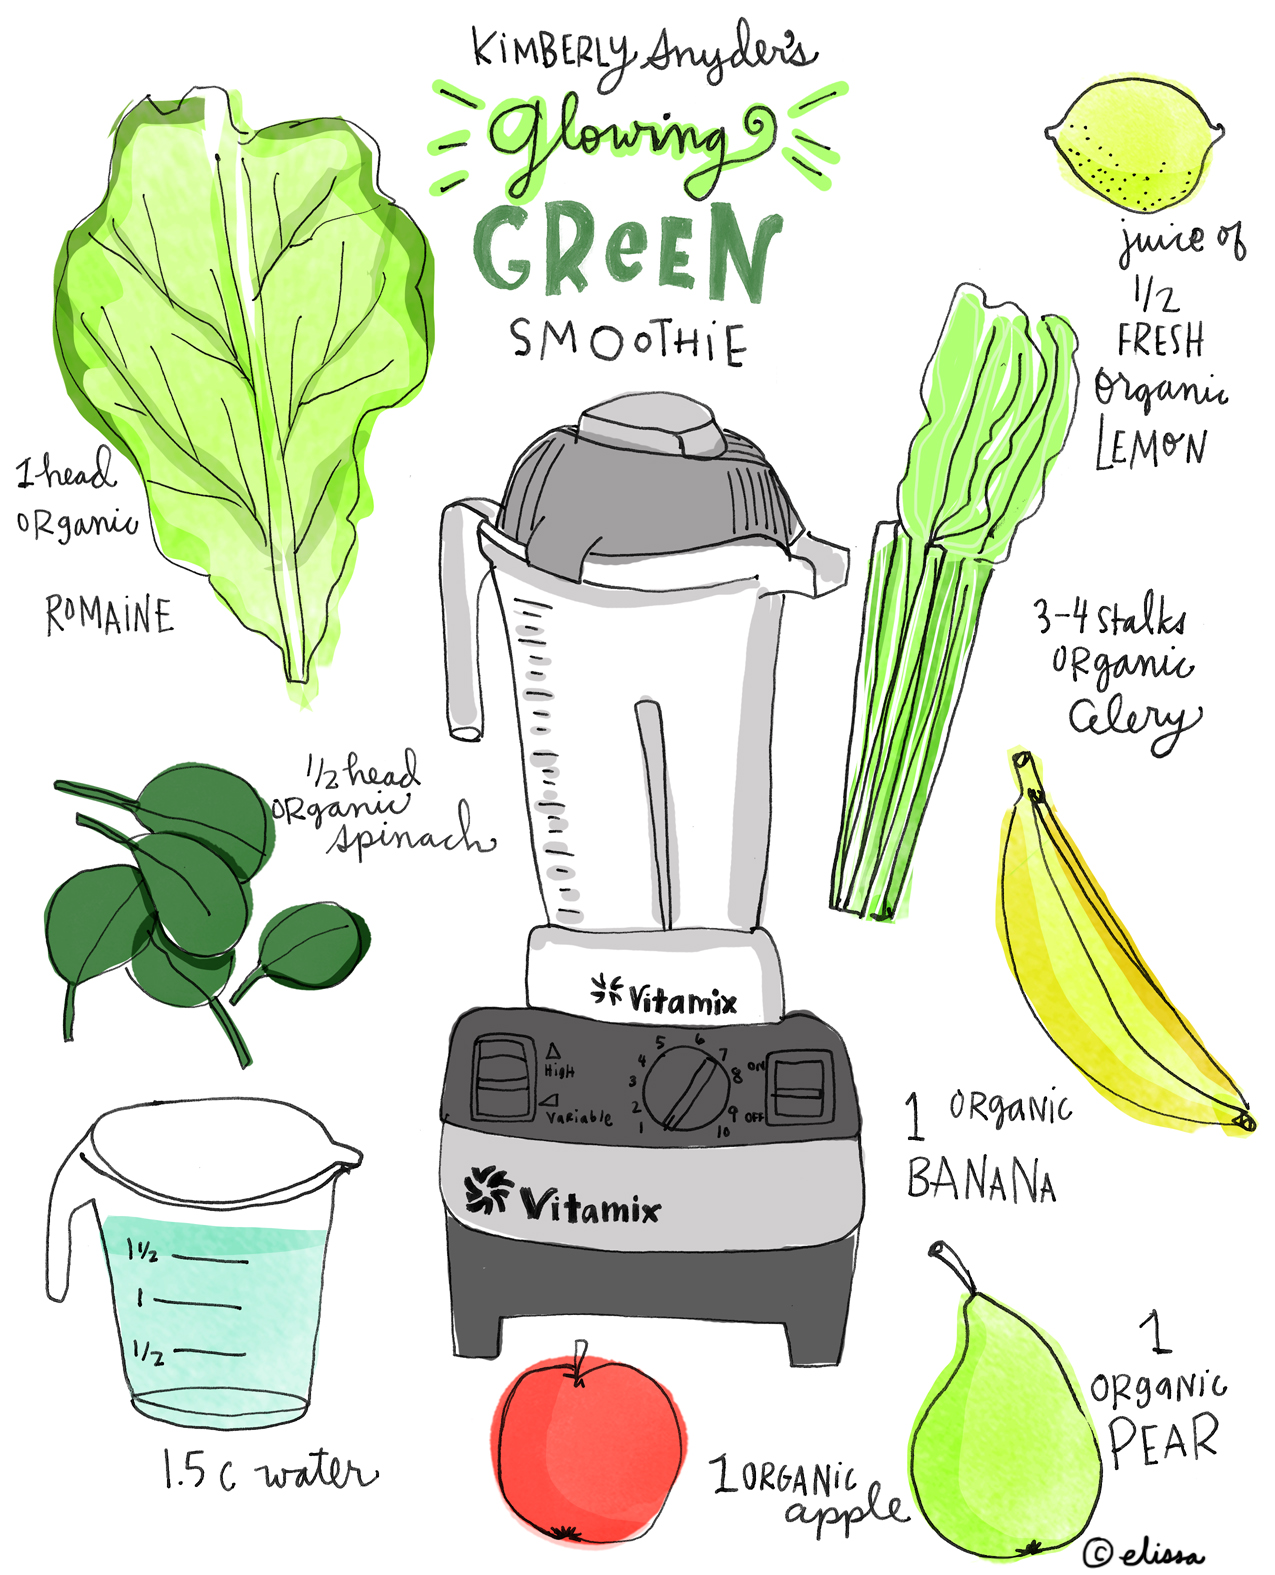 KiMBERLY Snyder's
glowing
GReEN
SMOOTHiE
juice of
1/2
FRESH
organic
LEMON
1 head
ORganic
ROMAiNE
3-4 stalks
ORganic
Celery
1/2 head
ORganic
spinach
Vitamix
High
Variable
1
2
3
4
5
6
7
8
9
10
ON
OFF
Vitamix
1 ORGANiC
BANANA
1 1/2
1
1/2
1.5 c water
1 ORGANiC
apple
1
ORGANiC
PEAR
© elissa